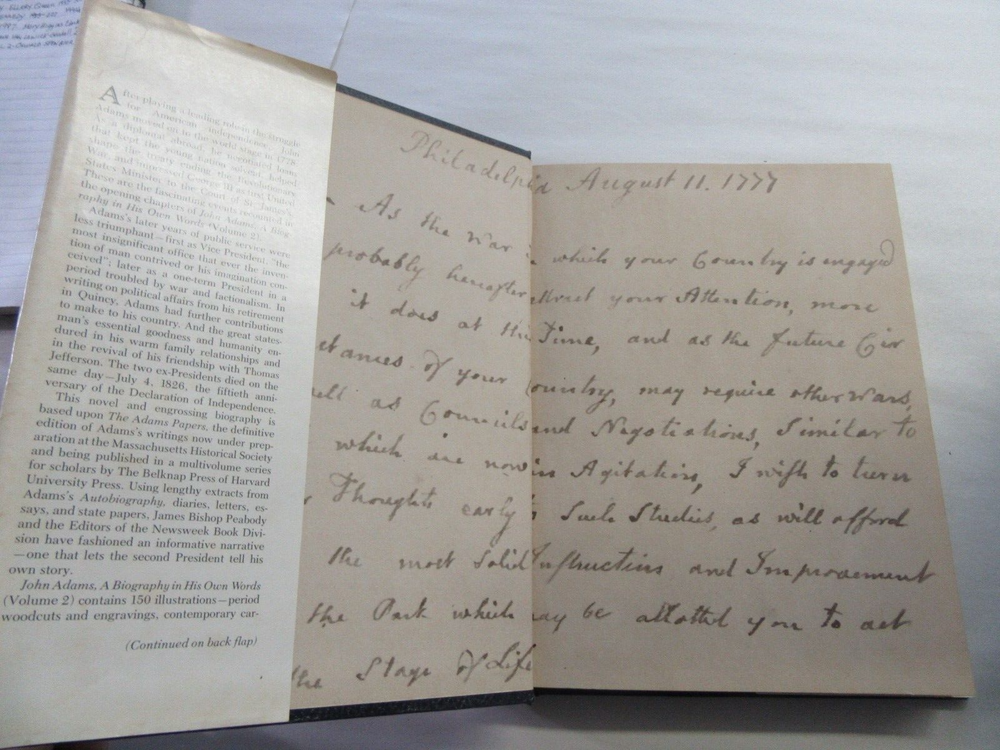 After playing a leading role in the struggle
for American independence, John
Adams moved on to the world stage in 1778.
As a diplomat abroad, he secured loans
that kept the young nation solvent, helped
shape the treaty ending the Revolutionary
War, and impressed George III as first United
States Minister to the Court of St. James's.
These are the fascinating events recounted in
the opening chapters of John Adams, A Biog-
raphy in His Own Words (Volume 2).
Adams's later years of public service were
less triumphant—first as Vice President, "the
most insignificant office that ever the inven-
tion of man contrived or his imagination con-
ceived"; later as a one-term President in a
period troubled by war and factionalism. In
writing on political affairs from his retirement
in Quincy, Adams had further contributions
to make to his country. And the great states-
man's essential goodness and humanity en-
dured in his warm family relationships and
in the revival of his friendship with Thomas
Jefferson. The two ex-Presidents died on the
same day—July 4, 1826, the fiftieth anni-
versary of the Declaration of Independence.
This novel and engrossing biography is
based upon The Adams Papers, the definitive
edition of Adams's writings now under prep-
aration at the Massachusetts Historical Society
and being published in a multivolume series
for scholars by The Belknap Press of Harvard
University Press. Using lengthy extracts from
Adams's Autobiography, diaries, letters, es-
says, and state papers, James Bishop Peabody
and the Editors of the Newsweek Book Divi-
sion have fashioned an informative narrative
—one that lets the second President tell his
own story.
John Adams, A Biography in His Own Words
(Volume 2) contains 150 illustrations—period
woodcuts and engravings, contemporary car-
(Continued on back flap)
Philadelphia August 11. 1777
As the War in which your Country is engaged
probably hereafter attract your Attention, more
it does at this Time, and as the future Cir
stances of your Country, may require other Wars,
well as Councils and Negotiations, Similar to
which are now in Agitation, I wish to turn
Thoughts early to Such Studies, as will afford
the most Solid Instruction and Improvement
the Part which may be allotted you to act
the Stage of Life